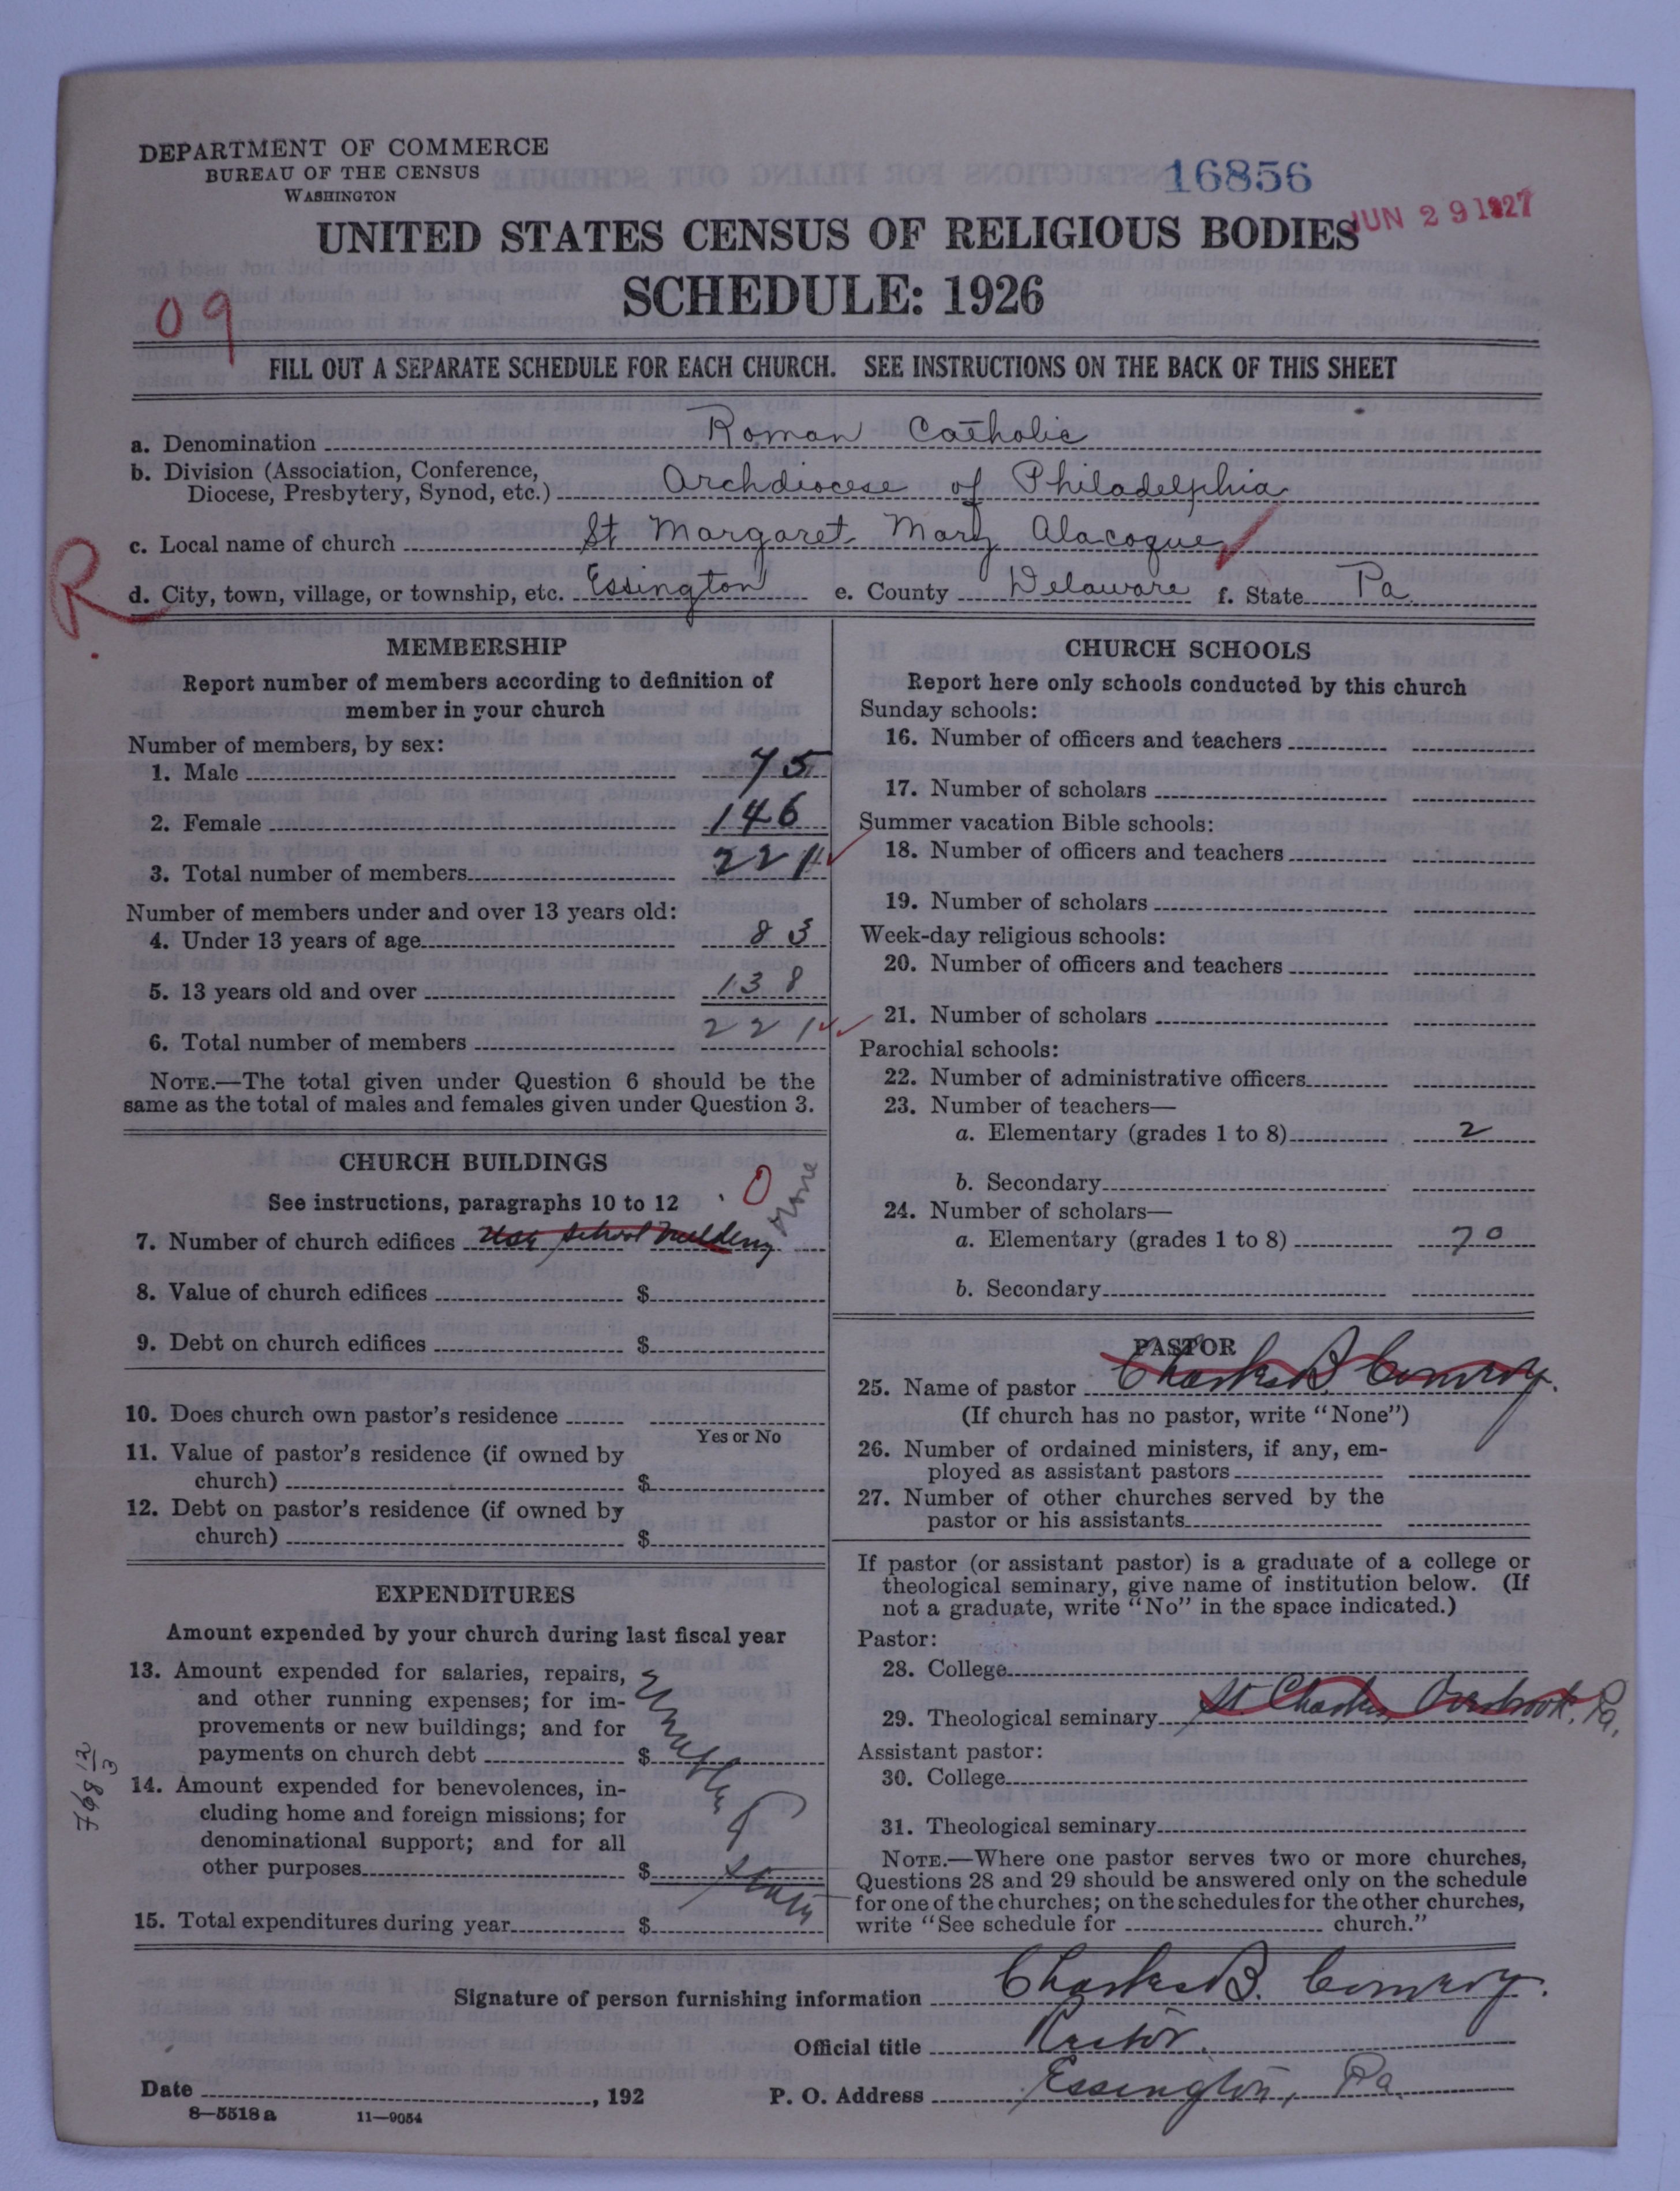 DEPARTMENT OF COMMERCE
BUREAU OF THE CENSUS
WASHINGTON
16856
JUN 29 1927
UNITED STATES CENSUS OF RELIGIOUS BODIES
SCHEDULE: 1926
09
FILL OUT A SEPARATE SCHEDULE FOR EACH CHURCH. SEE INSTRUCTIONS ON THE BACK OF THIS SHEET
a. Denomination Roman Catholic
b. Division (Association, Conference,
Diocese, Presbytery, Synod, etc.) Archdiocese of Philadelphia
c. Local name of church St Margaret Mary Alacoque
R
d. City, town, village, or township, etc. Essington e. County Delaware f. State Pa.
MEMBERSHIP
Report number of members according to definition of
member in your church
Number of members, by sex:
1. Male 75
2. Female 146
3. Total number of members 221
Number of members under and over 13 years old:
4. Under 13 years of age 83
5. 13 years old and over 138
6. Total number of members 221
NOTE.—The total given under Question 6 should be the
same as the total of males and females given under Question 3.
CHURCH BUILDINGS
See instructions, paragraphs 10 to 12 0 none
7. Number of church edifices Use school building
8. Value of church edifices $
9. Debt on church edifices $
10. Does church own pastor's residence
Yes or No
11. Value of pastor's residence (if owned by
church) $
12. Debt on pastor's residence (if owned by
church) $
EXPENDITURES
Amount expended by your church during last fiscal year
13. Amount expended for salaries, repairs,
and other running expenses; for im-
provements or new buildings; and for
payments on church debt $
14. Amount expended for benevolences, in-
cluding home and foreign missions; for
denominational support; and for all
other purposes $
15. Total expenditures during year $
CHURCH SCHOOLS
Report here only schools conducted by this church
Sunday schools:
16. Number of officers and teachers
17. Number of scholars
Summer vacation Bible schools:
18. Number of officers and teachers
19. Number of scholars
Week-day religious schools:
20. Number of officers and teachers
21. Number of scholars
Parochial schools:
22. Number of administrative officers
23. Number of teachers—
a. Elementary (grades 1 to 8) 2
b. Secondary
24. Number of scholars—
a. Elementary (grades 1 to 8) 70
b. Secondary
PASTOR
25. Name of pastor Charles B. Conroy.
(If church has no pastor, write "None")
26. Number of ordained ministers, if any, em-
ployed as assistant pastors
27. Number of other churches served by the
pastor or his assistants
If pastor (or assistant pastor) is a graduate of a college or
theological seminary, give name of institution below. (If
not a graduate, write "No" in the space indicated.)
Pastor:
28. College
29. Theological seminary St. Charles, Overbrook, Pa.
Assistant pastor:
30. College
31. Theological seminary
NOTE.—Where one pastor serves two or more churches,
Questions 28 and 29 should be answered only on the schedule
for one of the churches; on the schedules for the other churches,
write "See schedule for church."
Signature of person furnishing information Charles B. Conroy.
Official title Rector.
Date , 192 P. O. Address Essington, Pa.
8—5518 a 11—9054